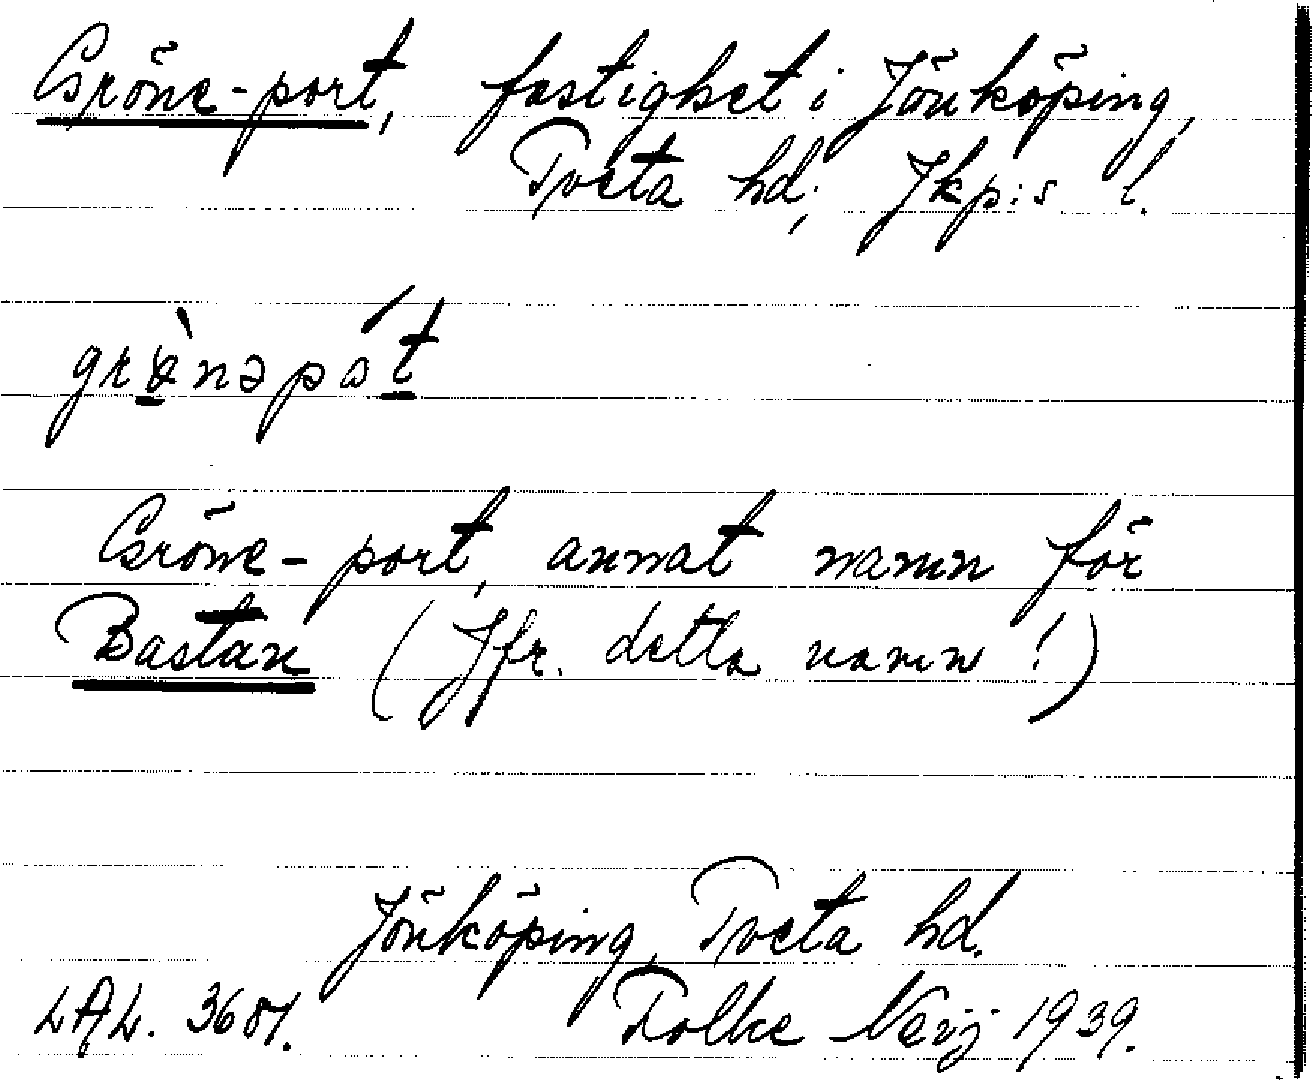 Gröne-port, fastighet i Jönköping,
Tveta hd, Jkp:s l.
grø̀nəpɑ́t
Gröne-port, annat namn för
Bastan (Jfr. detta namn!)
Jönköping, Tveta hd.
LAL. 3681. Folke Neij 1939.